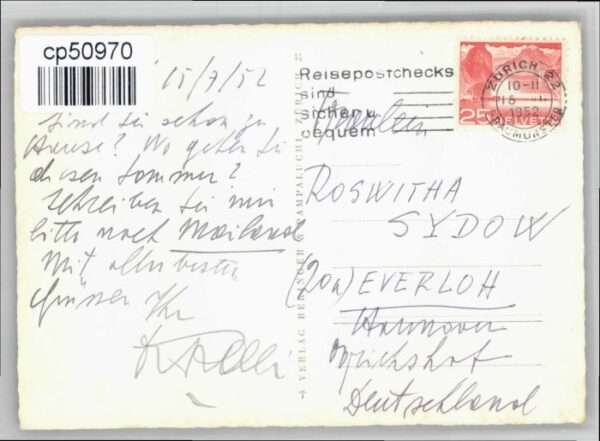 cp50970
15/7/52
Sind Sie schon zu
Hause? Wo gehen Sie
diesen Sommer?
Schreiben Sie mir
bitte nach Mailand
Mit allerbesten
Grüssen Ihr
Reisepostchecks
sind
sicher u
bequem
ZÜRICH 22
10-11
1952
FRAUMÜNSTER
25 HELVETIA
Fräulein
ROSWITHA
SYDOW
(20a) EVERLOH
Hannover
Deutschland
VERLAG
ZÜRICH